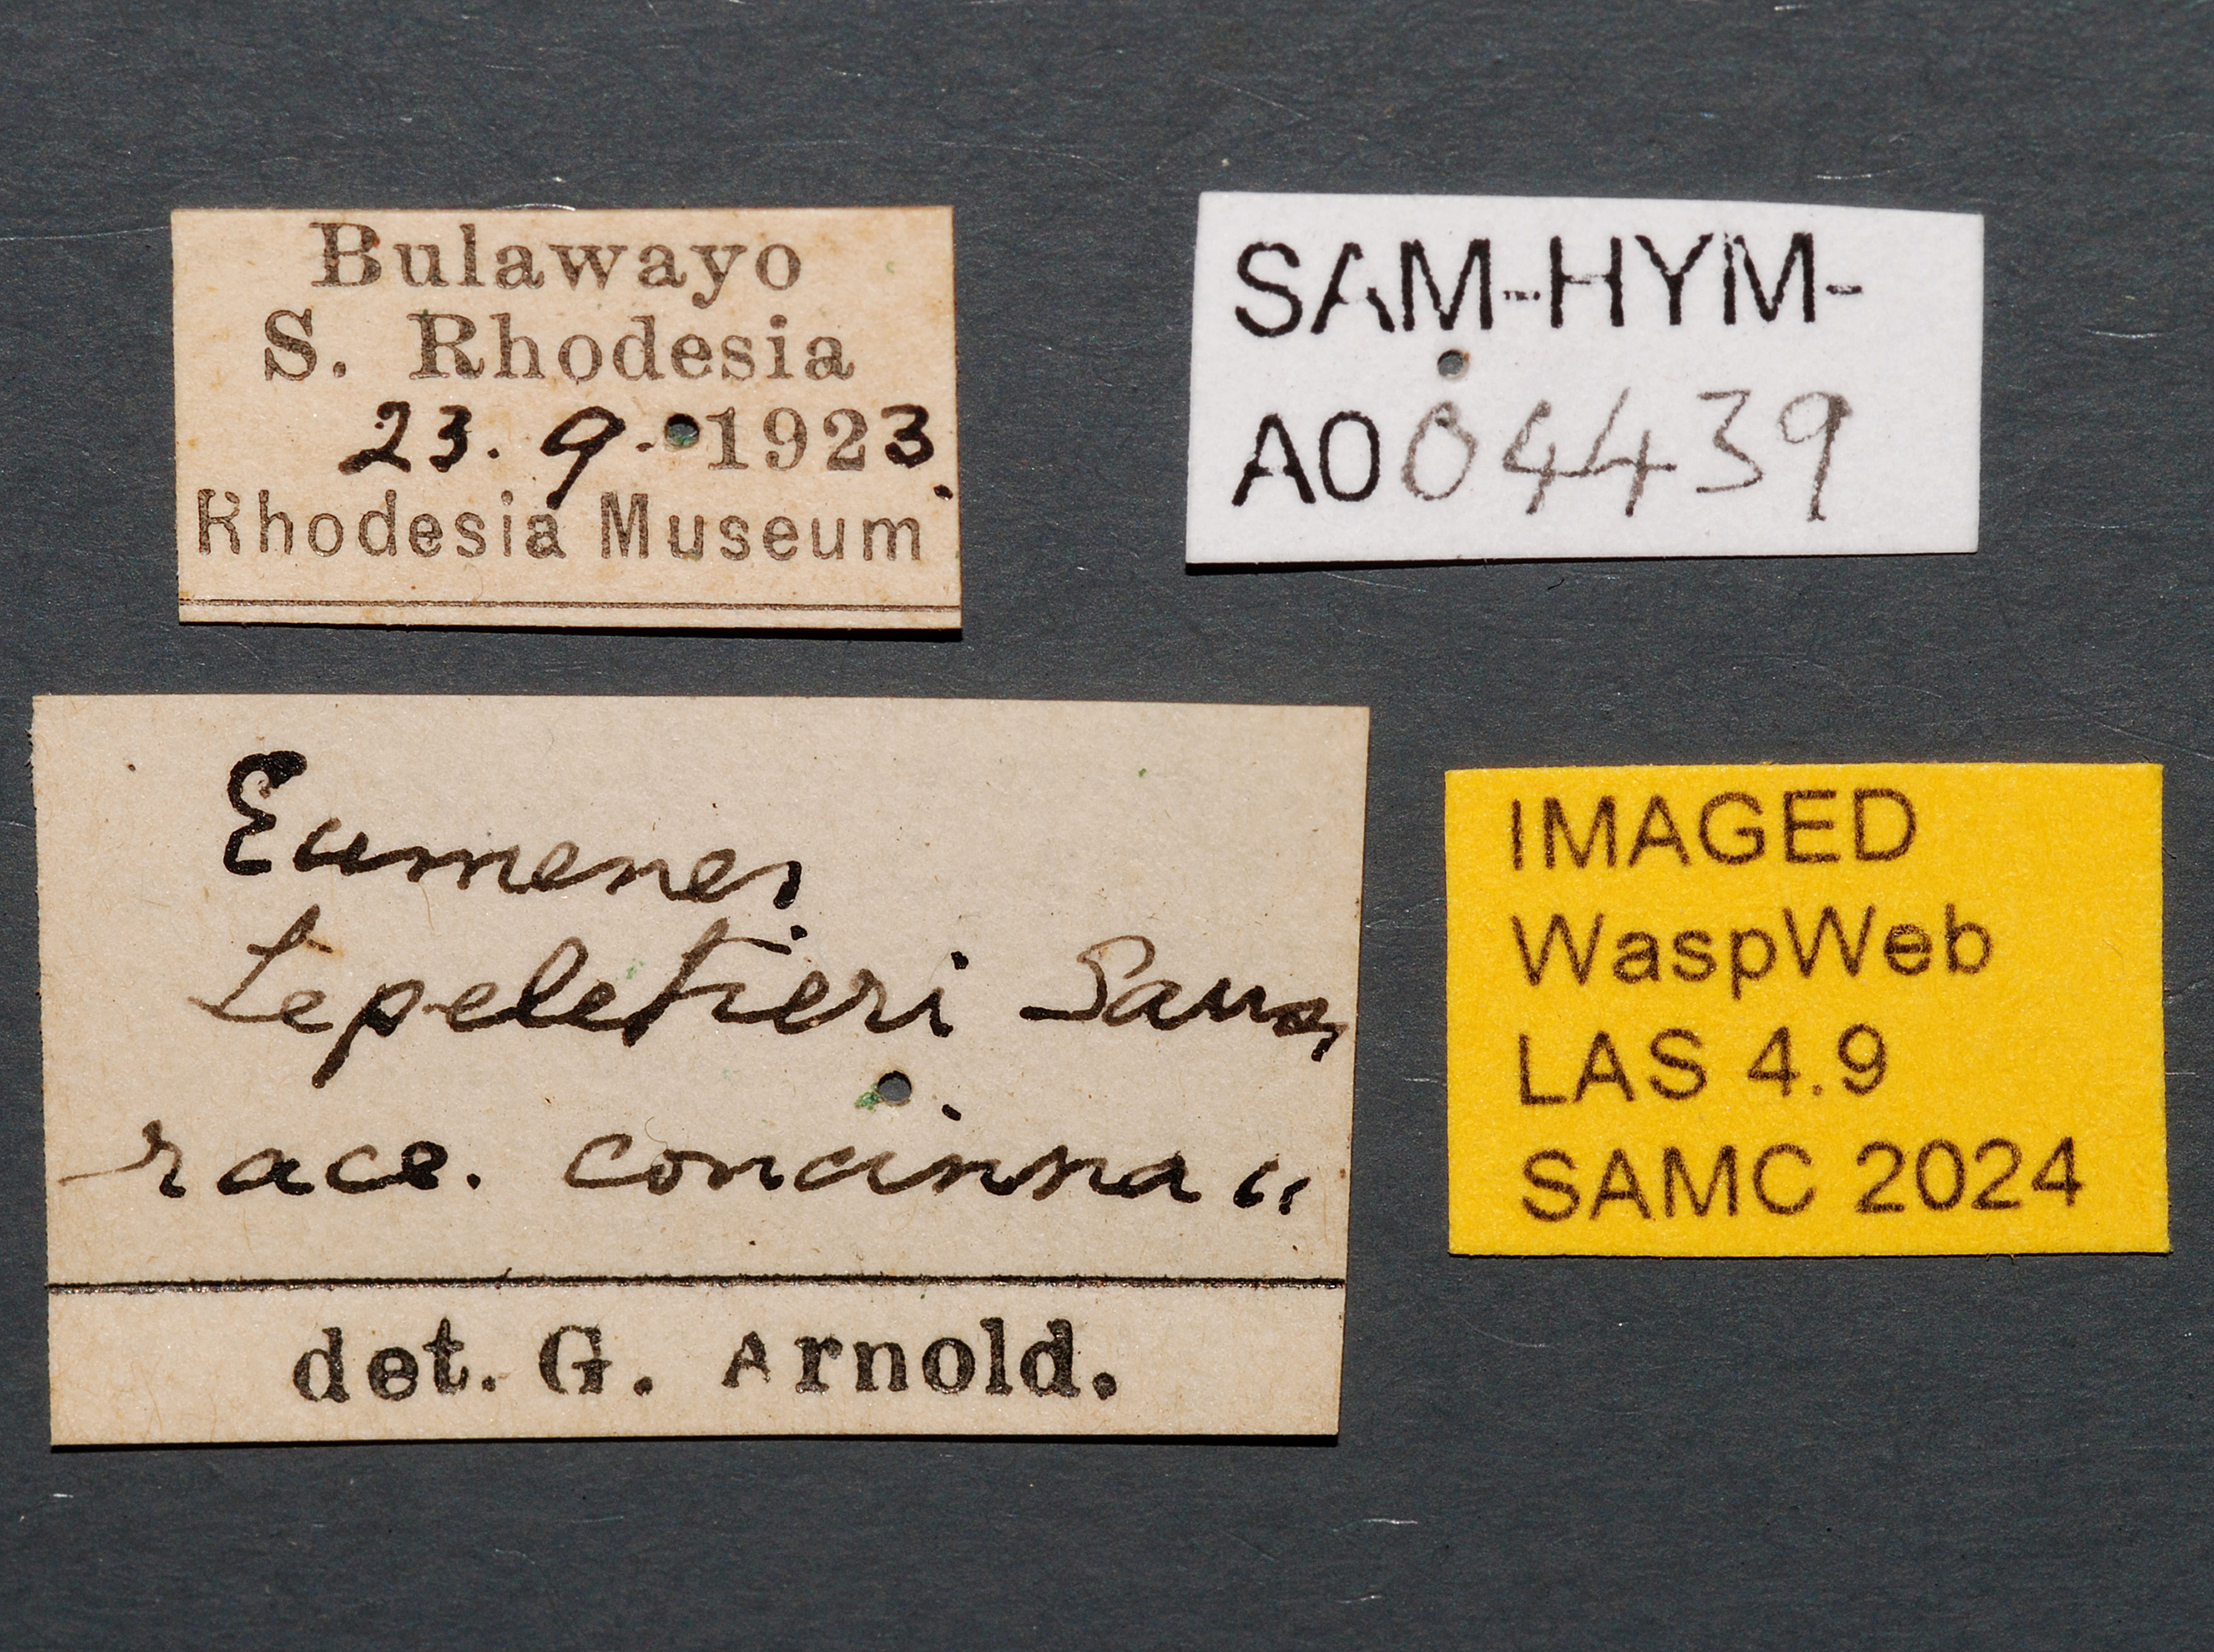 Bulawayo
S. Rhodesia
23. 9. 1923.
Rhodesia Museum
SAM-HYM-
A004439
Eumenes
Lepeletieri Sauss,
race. concinna "
det. G. Arnold.
IMAGED
WaspWeb
LAS 4.9
SAMC 2024